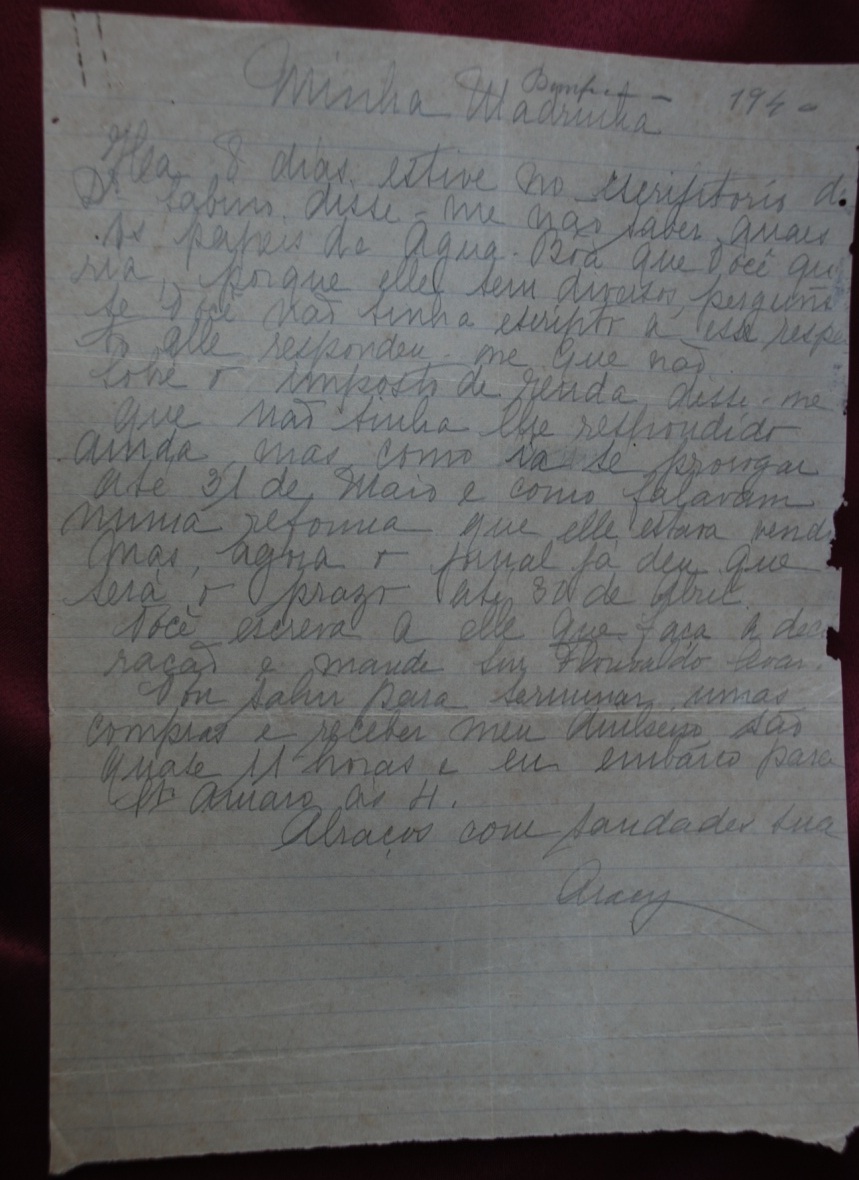 194
Minha Madrinha
Ha 8 dias estive no escriptorio d
Dr Sabino, disse-me não saber quaes
os papeis de Agua Boa que Você que
ria, porque elle tem diversos, pergunt
se Você não tinha escripto a esse respei
to elle respondeu-me que não
Sobre o imposto de renda disse-me
que não tinha respondido
ainda, mas como ia se prorogar
até 31 de Maio e como falavam
numa reforma que elle estava vend
mas, agora o jornal já deu que
será o prazo até 30 de Abril.
Você escreva a elle que faça a decl
ração e mande
Vou sahir para terminar umas
compras e receber meu dinheiro são
quase 11 horas e eu embarco para
Sto Amaro ás 4.
Abraços com saudades sua
Aracy